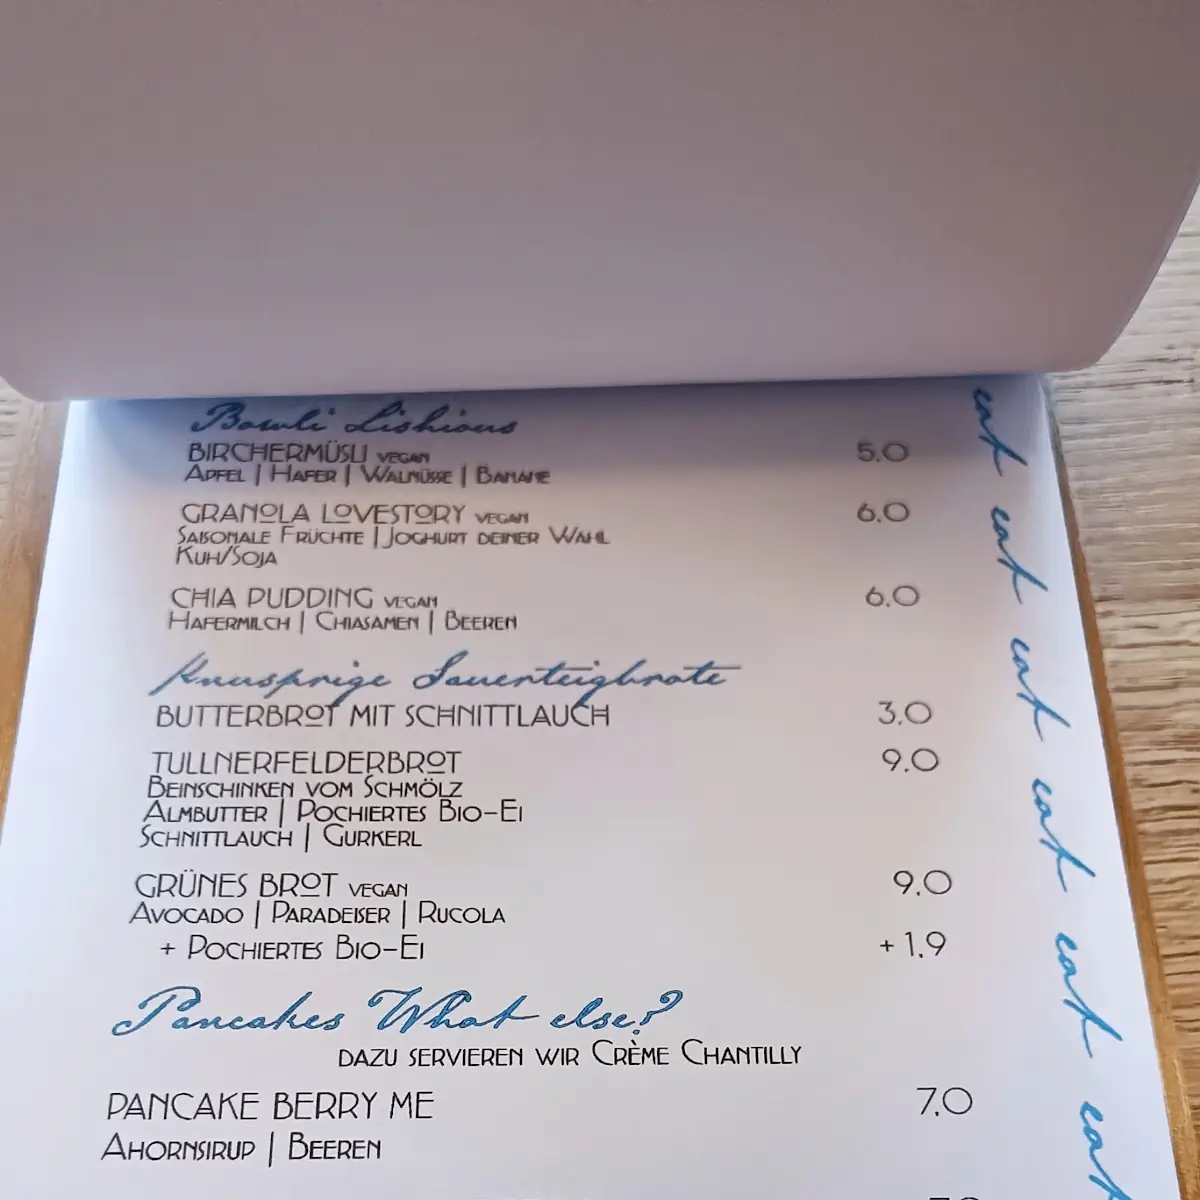 Bowli Lishious
BIRCHERMÜSLI VEGAN 5.0
APFEL | HAFER | WALNÜSSE | BANANE
GRANOLA LOVESTORY VEGAN 6.0
SAISONALE FRÜCHTE | JOGHURT DEINER WAHL
KUH/SOJA
CHIA PUDDING VEGAN 6.0
HAFERMILCH | CHIASAMEN | BEEREN
Knusprige Sauerteigbrote
BUTTERBROT MIT SCHNITTLAUCH 3.0
TULLNERFELDERBROT 9.0
BEINSCHINKEN VOM SCHMÖLZ
ALMBUTTER | POCHIERTES BIO-EI
SCHNITTLAUCH | GURKERL
GRÜNES BROT VEGAN 9.0
AVOCADO | PARADEISER | RUCOLA
+ POCHIERTES BIO-EI + 1.9
Pancakes What else?
DAZU SERVIEREN WIR CRÈME CHANTILLY
PANCAKE BERRY ME 7.0
AHORNSIRUP | BEEREN
eat eat eat eat eat eat